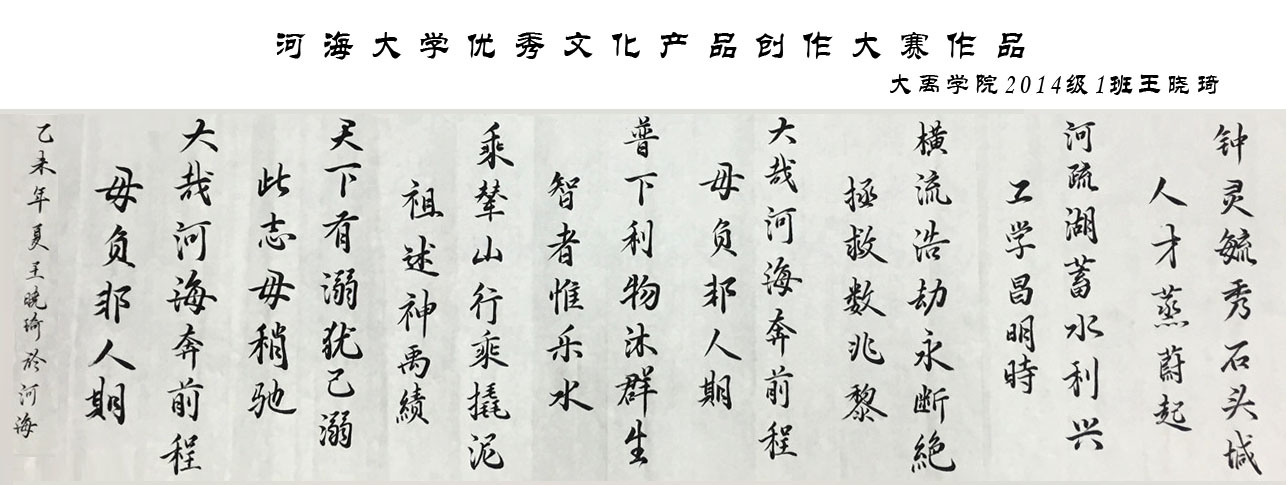 河海大学优秀文化产品创作大赛作品
大禹学院2014级1班王晓琦
钟灵毓秀石头城
人才蒸蔚起
河疏湖蓄水利兴
工学昌明時
横流浩劫永断絶
拯救数兆黎
大哉河海奔前程
毋负邦人期
普下利物沐群生
智者惟乐水
乘輂山行乘撬泥
祖述神禹績
天下有溺犹己溺
此志毋稍驰
大哉河海奔前程
毋负邦人期
乙未年夏王晓琦於河海